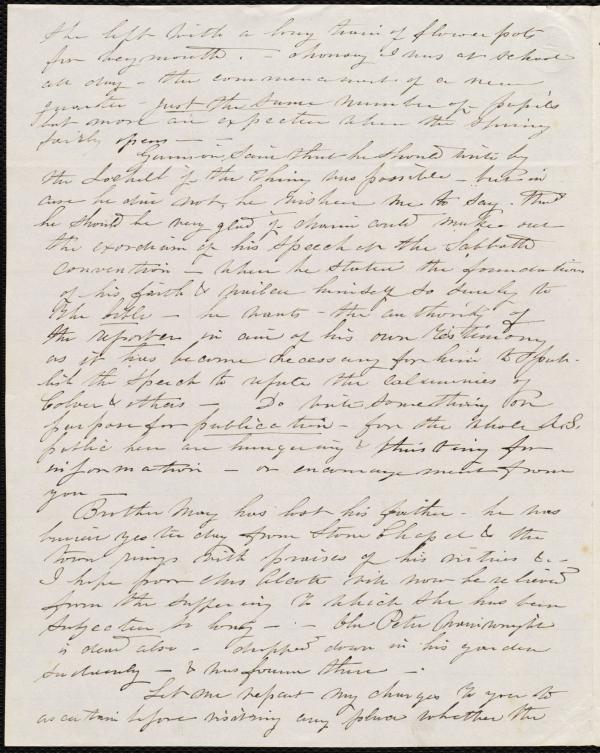 she left with a long train of flower pots
for Weymouth. – Monday I was at school
all day – the commencement of a new
quarter – just the same number of pupils
but more are expected when the spring
fairly opens –
Garrison said that he should write by
the if the thing was possible – but in
case he did not, he wished me to say, that
he should be very glad if Maria could make out
the exordium of his speech at the Sabbath
Convention – when he stated the foundation
of his faith & nailed himself so surely to
the bible – he wants the authority of
the reporter in aid of his own testimony
as it has become necessary for him to pub-
lish the speech to refute the calumnies of
Colver & others – Do write something on
purpose for publication – for the whole A.S.
public here are hungering & thirsting for
information – or encouragement from
you –
Brother May has lost his father – he was
buried yesterday from Stone Chapel & the
town rings with praises of his virtues &c –
I hope poor Mrs Alcott will now be relieved
from the suffering to which she has been
subjected so long – – Old Peter Wainwright
is dead also – dropped down in his garden
suddenly – & was found there –
Let me repeat my charges to you to
ascertain before visiting any place whether the